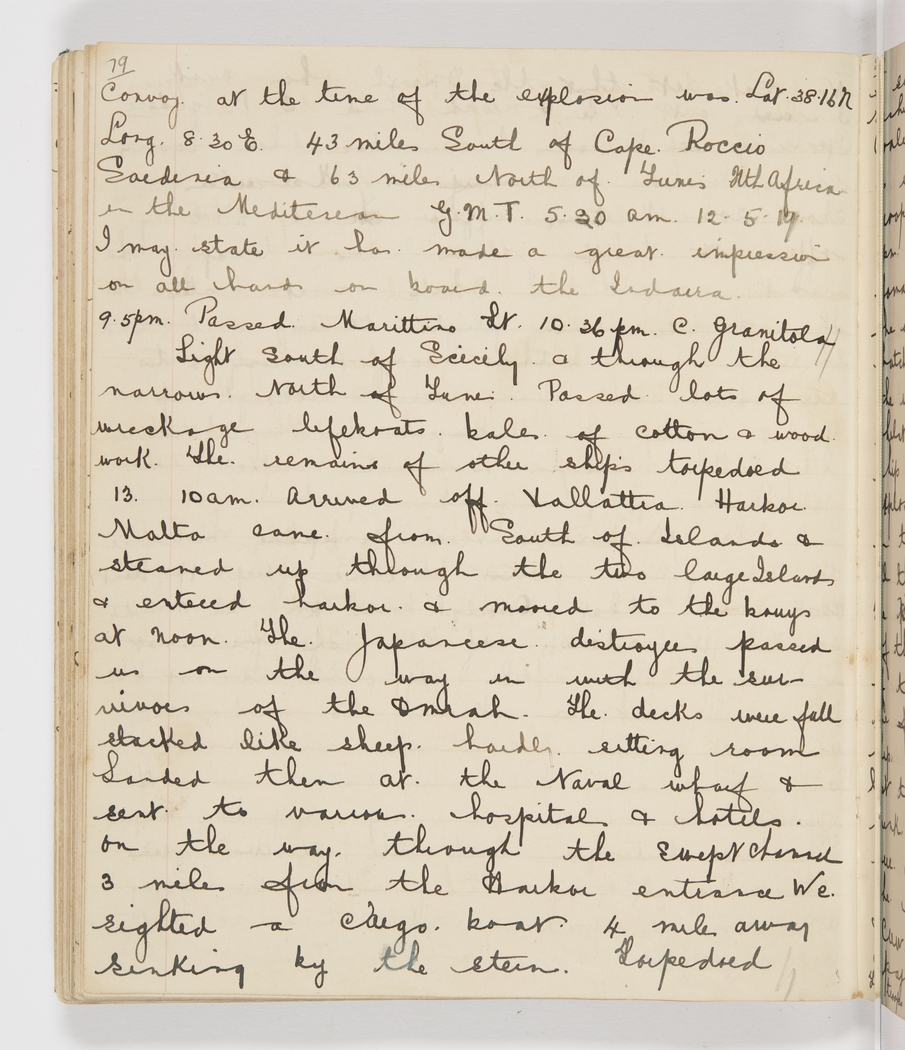 79
Convoy. at the time of the explosion was. Lat. 38.16 N
Long. 8.30 E. 43 miles South of Cape. Roccio
Saedinia & 63 miles North of. Tunis Nth Africa
in the Mediterean G.M.T. 5.30 am. 12.5.17.
I may. state it has. made a great. impression
on all hands on board. the Indarra.
9.5pm. Passed. Marittino Lt. 10.36 pm. C. Granitola
Light South of Scicily. & through the
narrows. North of Tunis. Passed lots of
wreckage lifeboats. bales. of cotton & wood.
work. The. remains of other ships torpedoed
13. 10am. Arrived off. Vallattia. Harbor.
Malta came. from. South of. Islands &
steamed up through the two large Islands
& entered harbor. & moored to the bouys
at noon. The. Japancese. distroyer passed
us on the way in with the sur-
vivors of the Omrah. The. decks were full
stacked like sheep. hardly. sitting room
Landed them at. the Naval wharf &
sent. to various. hospitals & hotels.
on the way. through the Swept Channel
3 miles from the Harbor entrance We.
sighted a Cargo. boat. 4 miles away
sinking by the stern. Torpedoed